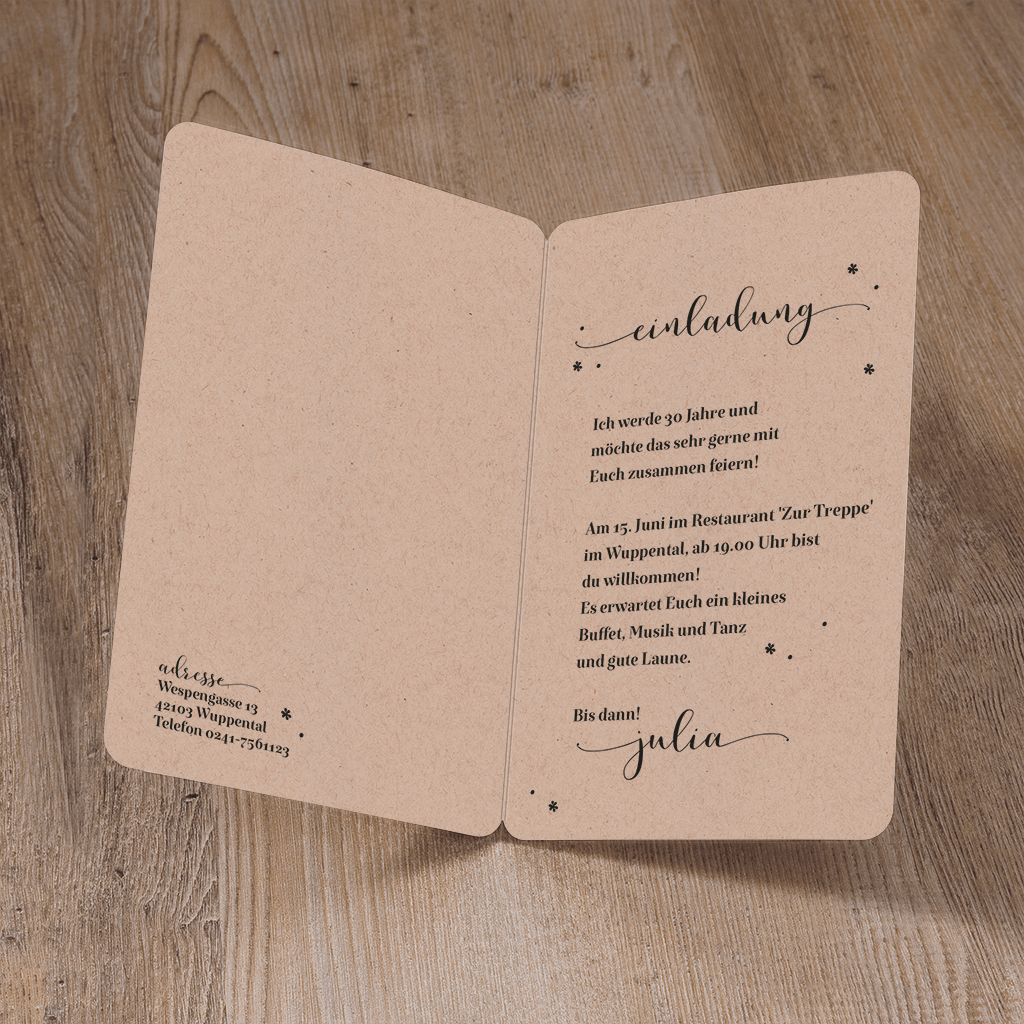 adresse
Wespengasse 13
42103 Wuppental
Telefon 0241-7561123
einladung
Ich werde 30 Jahre und
möchte das sehr gerne mit
Euch zusammen feiern!
Am 15. Juni im Restaurant 'Zur Treppe'
im Wuppental, ab 19.00 Uhr bist
du willkommen!
Es erwartet Euch ein kleines
Buffet, Musik und Tanz
und gute Laune.
Bis dann!
julia